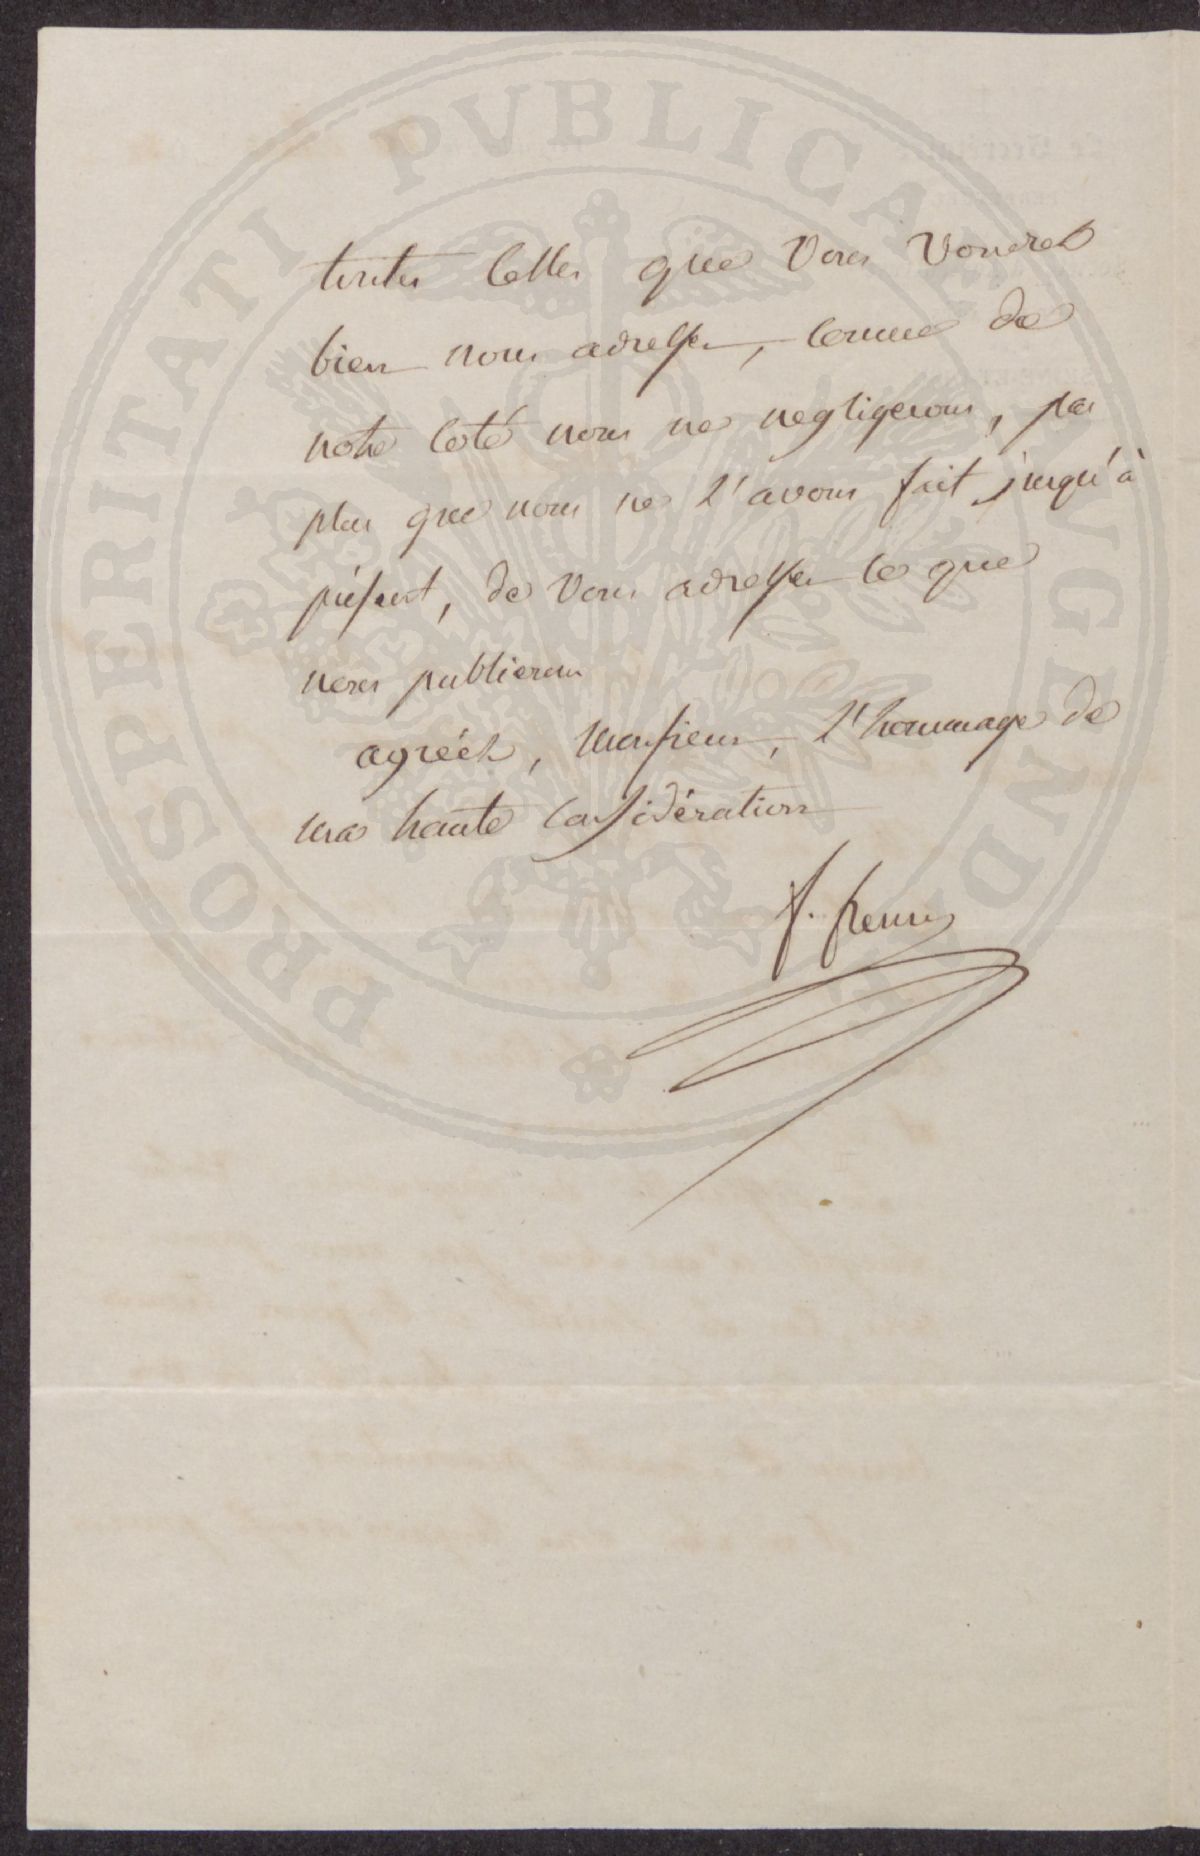 PROSPERITATI PUBLICAE AUGENDAE
toutes celles que vous voudrez
bien nous adresser, comme de
notre coté nous ne negligerons, pas
plus que nous ne l'avons fait jusqu'à
présent, de vous adresser ce que
nous publierons
agréez, Monsieur, l'hommage de
ma haute considération